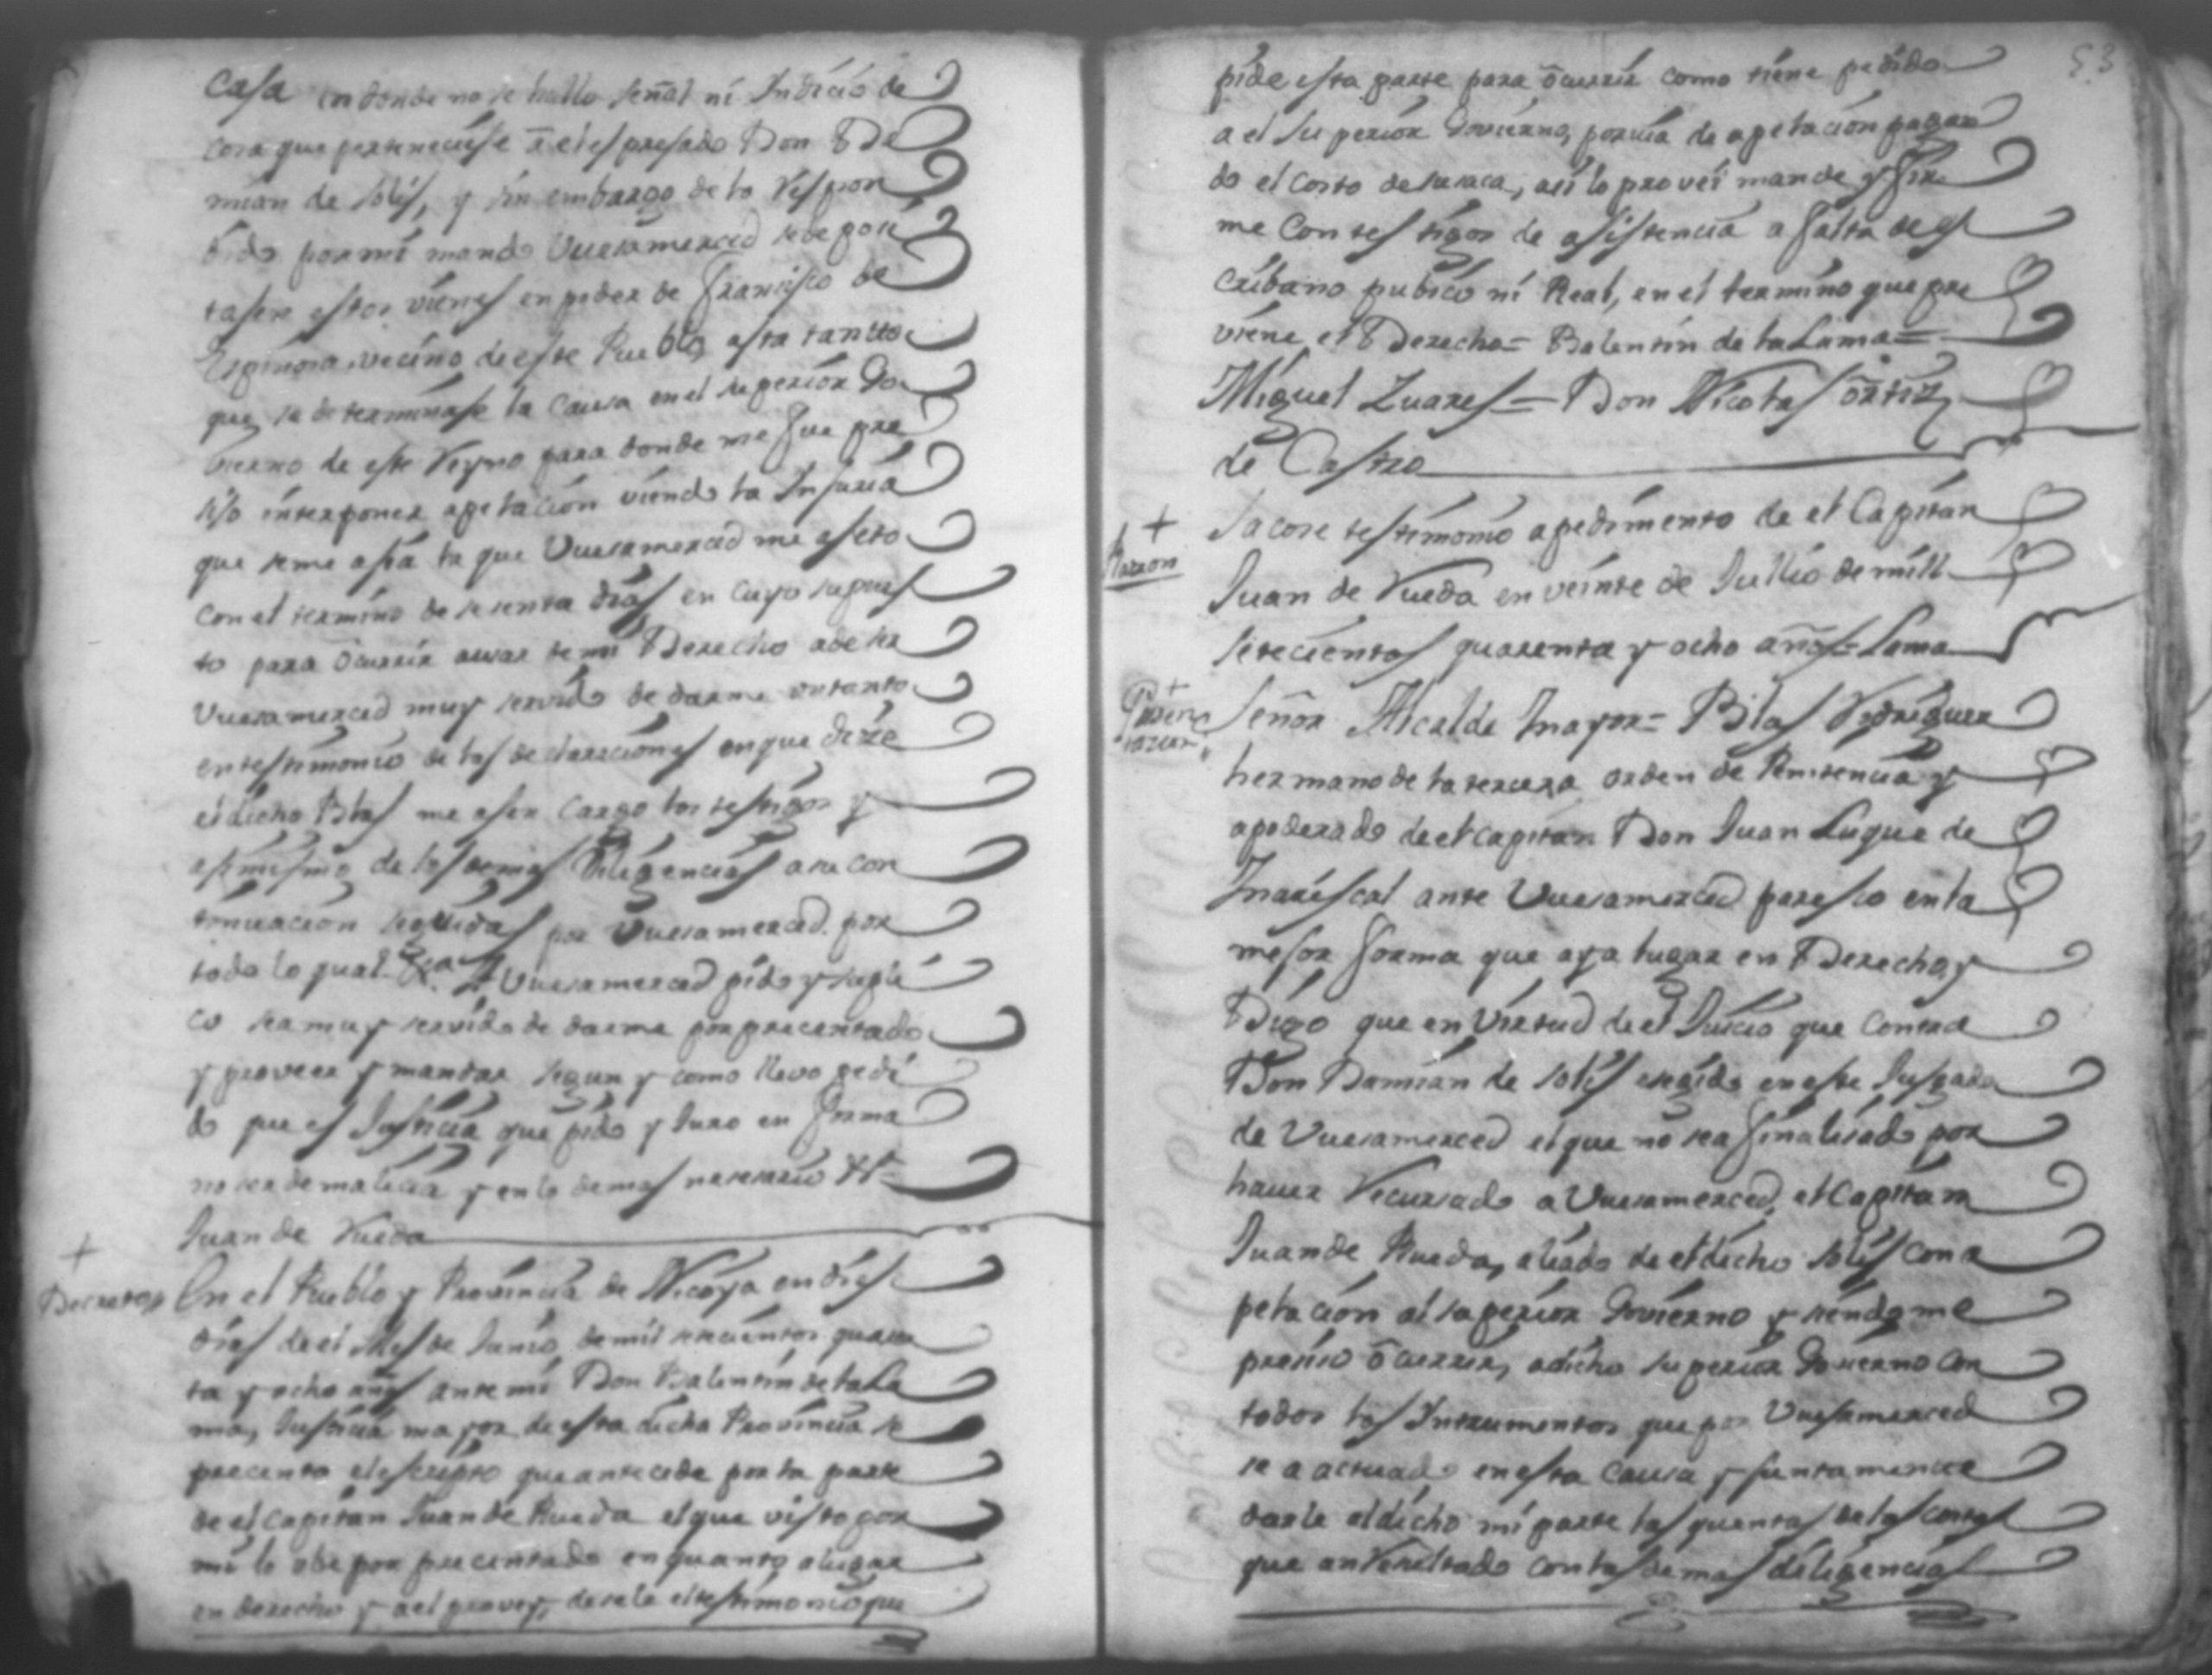 Casa en donde no se hallo señal ni Indicio de
cosa que perteneciese a el espresado Don Da
mian de Solis, y sin embargo de lo Respon
dido por mi mando Vuesamerced se depoci
tasen estos vienes en poder de Francisco de
Espinosa, vecino de este Pueblo, asta tantto
que se determinase la Causa en el superior Go
vierno de este Reyno para donde me fue pre
siso interponer apelacion viendo la Injuria
que se me asia la que Vuesamerced me
con el termino de sesenta dias en cuyo supues
to para ôcurrir a usar de mi Derecho a de ser
Vuesamerced muy servido de darme un tanto
en testimonio de las declaraciones en que dize
el dicho Blas me asen Cargo los testigos y
asimismo de las demas Diligencias a su con
tinuacion seguidas por Vuesamerced. por
todo lo qual A Vuesamerced pido y supli
co sea muy servido de darme por precentado
y proveer y mandar segun y como llevo pedi
do que es Justicia que pido y Juro en forma
no ser de malicia y en lo demas nesesario &ª
Juan de Rueda
+
Decreto En el Pueblo y Provincia de Nicoya en dies
dias de el Mes de Junio, de mil setecientos quaren
ta y ocho años ante mi Don Balentin de la La
ma, Justicia mayor de esta dicha Provincia se
precento el escripto que antecede por la parte
de el Capitan Juan de Rueda el que visto por
mi lo ube por precentado en quanto a lugar
en derecho y a el provey, desele el testimonio que
53
pide esta parte para ôcurrir como tiene pedido
a el Superior Govierno, por via de apelacion pagan
do el Costo de su saca, asi lo provei mande y fir
me Con testigos de asistencia a falta de es
cribano pubico ni Real, en el termino que pre
viene el Derecho= Balentin de la Lama=
Miguel Zuares= Don Nicolas ôrtiz
de Castro
+
Razon
Sacose testimonio a pedimento de el Capitan
Juan de Rueda en veinte de Jullio de mill
setecientos quarenta y ocho años= Lama
+
Precen
tacion
Señor Alcalde mayor= Blas Rodriguez
hermano de la tercera orden de Penitencia y
apoderado de el Capitan Don Juan Luque de
Mariscal ante Vuesamerced paresco en la
mejor forma que aya lugar en Derecho, y
Digo que en Virtud de el Juicio que Contra
Don Damian de Solis e segido en este Jusgado
de Vuesamerced el que no sea finalisado por
haver Recursado a Vuesamerced, el Capitan
Juan de Rueda, aliado de el dicho Solis con a
pelacion al superior Govierno y siendome
presiso ôcurrir, a dicho superior Govierno con
todos los Intrumentos que por Vuesamerced
se a actuado en esta Causa y juntamente
darle al dicho mi parte las quentas de las costas
que an Resultado con las demas diligencias